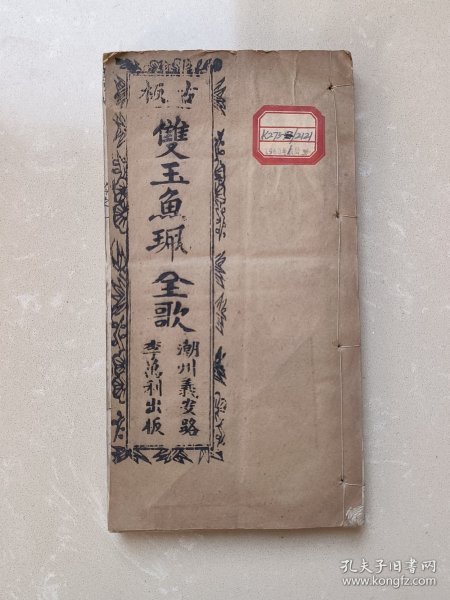 古板
雙玉魚珮 全歌
潮州義安路
李萬利出板
K273
2121
孔夫子旧书网
www.kongfz.com